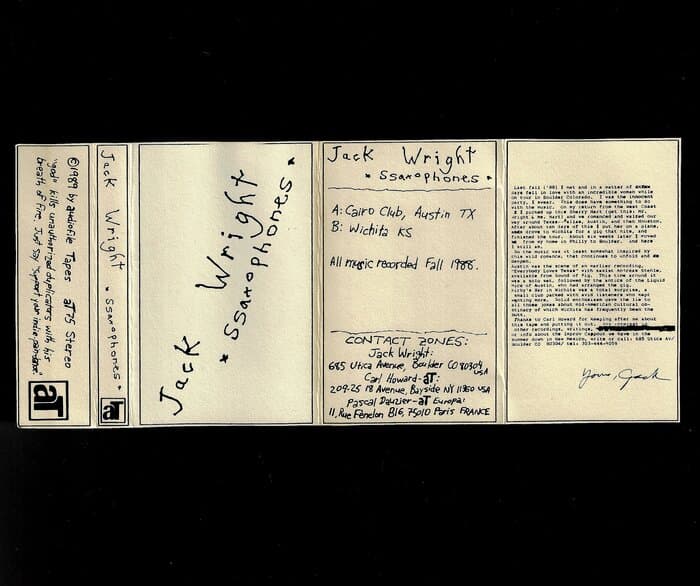 ©1989 by audiofile Tapes aT 75 Stereo
"god" kills unauthorized duplicators with his
breath of fire. Just say "support your indie
aT
Jack Wright * ssaxophones *
aT
Jack Wright
* ssaxophones *
Jack Wright
* ssaxophones *
A: Cairo Club, Austin TX
B: Wichita KS
All music recorded Fall 1988.
CONTACT ZONES:
Jack Wright:
685 Utica Avenue, Boulder CO 80304 USA
Carl Howard-aT:
209-25 18 Avenue, Bayside NY 11360 USA
Pascal Dauzier-aT Europa:
11, Rue Fenelon B16, 75010 Paris FRANCE
Last fall ('88) I met and in a matter of
days fell in love with an incredible woman while
on tour in Boulder Colorado. I was the innocent
party, I swear. This does have something to do
with the music. On my return from the west Coast
I picked up this Sherry Hart (get this: Mr.
Wright & Ms. Hart) and we romanced and walked our
way around Texas--Dallas, Austin, and then Houston.
After about ten days of this I put her on a plane,
and drove to Wichita for a gig that nite, and
finished the tour. About six weeks later I moved
from my home in Philly to Boulder, and here
I still am.
So the music was at least somewhat inspired by
this wild romance, that continues to unfold and
Austin was the scene of an earlier recording,
"Everybody Loves Texas" with
available from Sound of Pig. This time around it
was a solo set, followed by the antics of the Liquid
of Austin, who had arranged the gig.
Kirby's Bar in Wichita was a total surprise, a
small club packed with avid listeners who kept
wanting more. Solid enthusiasm gave the lie to
all those jokes about mid-American Cultural
of which Wichita has frequently been the
butt.
Thanks to Carl Howard for keeping after me about
this tape and putting it out. For
other recordings, writings,
or info about the Improv Campout we have in the
summer down in New Mexico, write or call: 685 Utica Av/
Boulder CO 80304/ tel: 303-444-
Yours, Jack